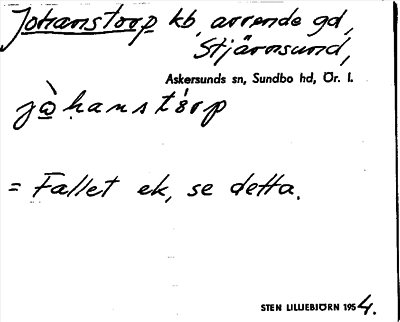 Johanstorp kb, arrende gd,
Stjärnsund,
Askersunds sn, Sundbo hd, Ör. l.
jò̲hanstórp
= Fallet ek, se detta.
STEN LILLIEBJÖRN 1954.